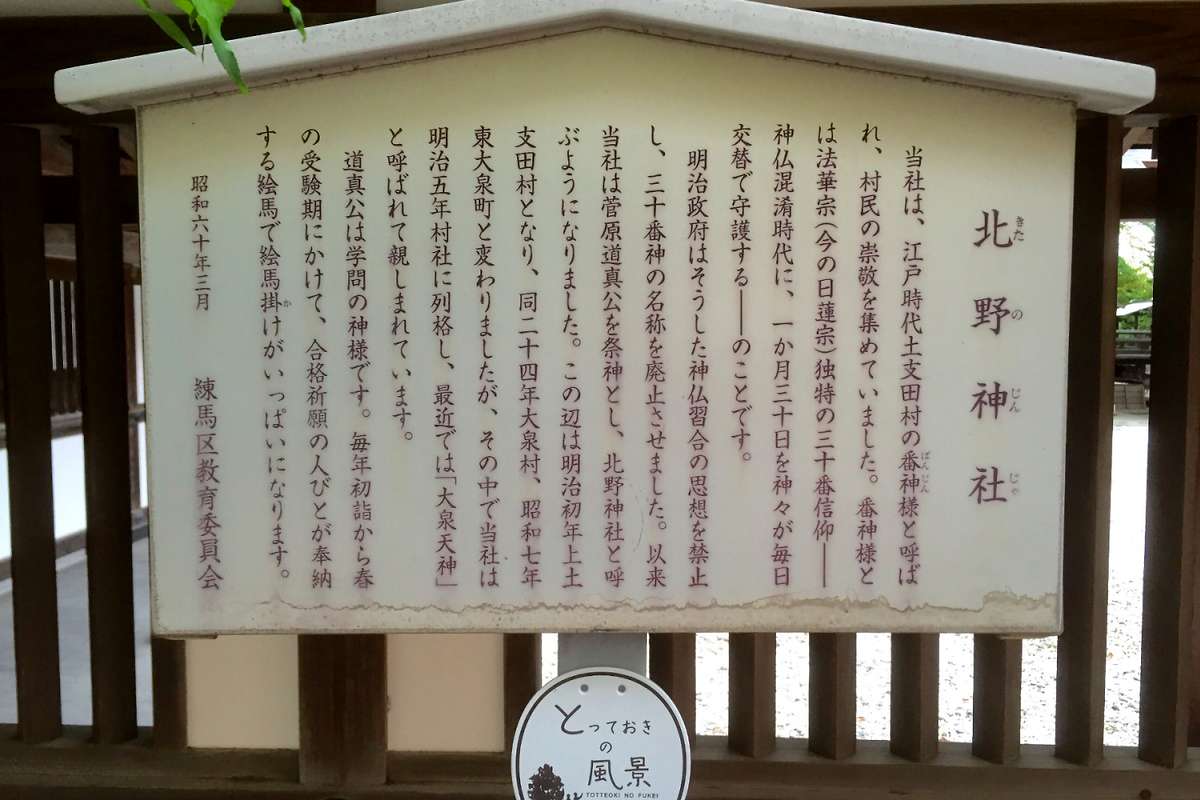 北野神社
きたのじんじゃ
当社は、江戸時代土支田村の番神様と呼ば
ばんじん
れ、村民の崇敬を集めていました。番神様と
は法華宗(今の日蓮宗)独特の三十番信仰――
神仏混淆時代に、一か月三十日を神々が毎日
交替で守護する――のことです。
明治政府はそうした神仏習合の思想を禁止
し、三十番神の名称を廃止させました。以来
当社は菅原道真公を祭神とし、北野神社と呼
ぶようになりました。この辺は明治初年上土
支田村となり、同二十四年大泉村、昭和七年
東大泉町と変わりましたが、その中で当社は
明治五年村社に列格し、最近では「大泉天神」
と呼ばれて親しまれています。
道真公は学問の神様です。毎年初詣から春
の受験期にかけて、合格祈願の人びとが奉納
する絵馬で絵馬掛けがいっぱいになります。
か
昭和六十年三月 練馬区教育委員会
とっておき
の
風景
TOTTEOKI NO FUKEI